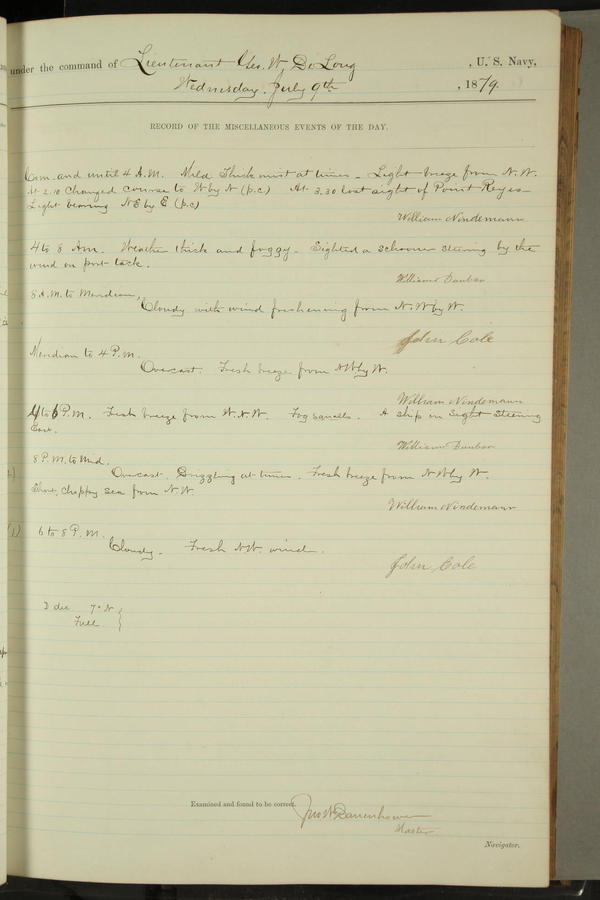 under the command of Lieutenant Geo. W. De Long, U. S. Navy,
Wednesday, July 9th, 1879.
RECORD OF THE MISCELLANEOUS EVENTS OF THE DAY.
Com. and until 4 A.M. Mild Thick mist at times - Light breeze from N.W.
At 2.10 Changed course to W by N (p.c) At 3.30 lost sight of Point Reyes
Light bearing NE by E (p.c)
William Nindemann
4 to 8 Am. Weather thick and foggy. Sighted a schooner steering by the
wind on port tack.
William Dunbar
8 A.M. to Meridian,
Cloudy with wind freshening from N.W by W.
John Cole
Meridian to 4 P.M.
Overcast. Fresh breeze from NW by W.
William Nindemann
4 to 6 P.M. Fresh breeze from W.N.W. Fog squalls. A ship in sight steering
East.
William Dunbar
8 P.M. to Mid.
Overcast. Drizzling at times. Fresh breeze from NW by W.
Short, choppy sea from NW
William Nindemann
6 to 8 P.M.
Cloudy. Fresh NW. wind.
John Cole
D dec 7° N
Full
Examined and found to be correct.
Jno W Danenhower
Master
Navigator.